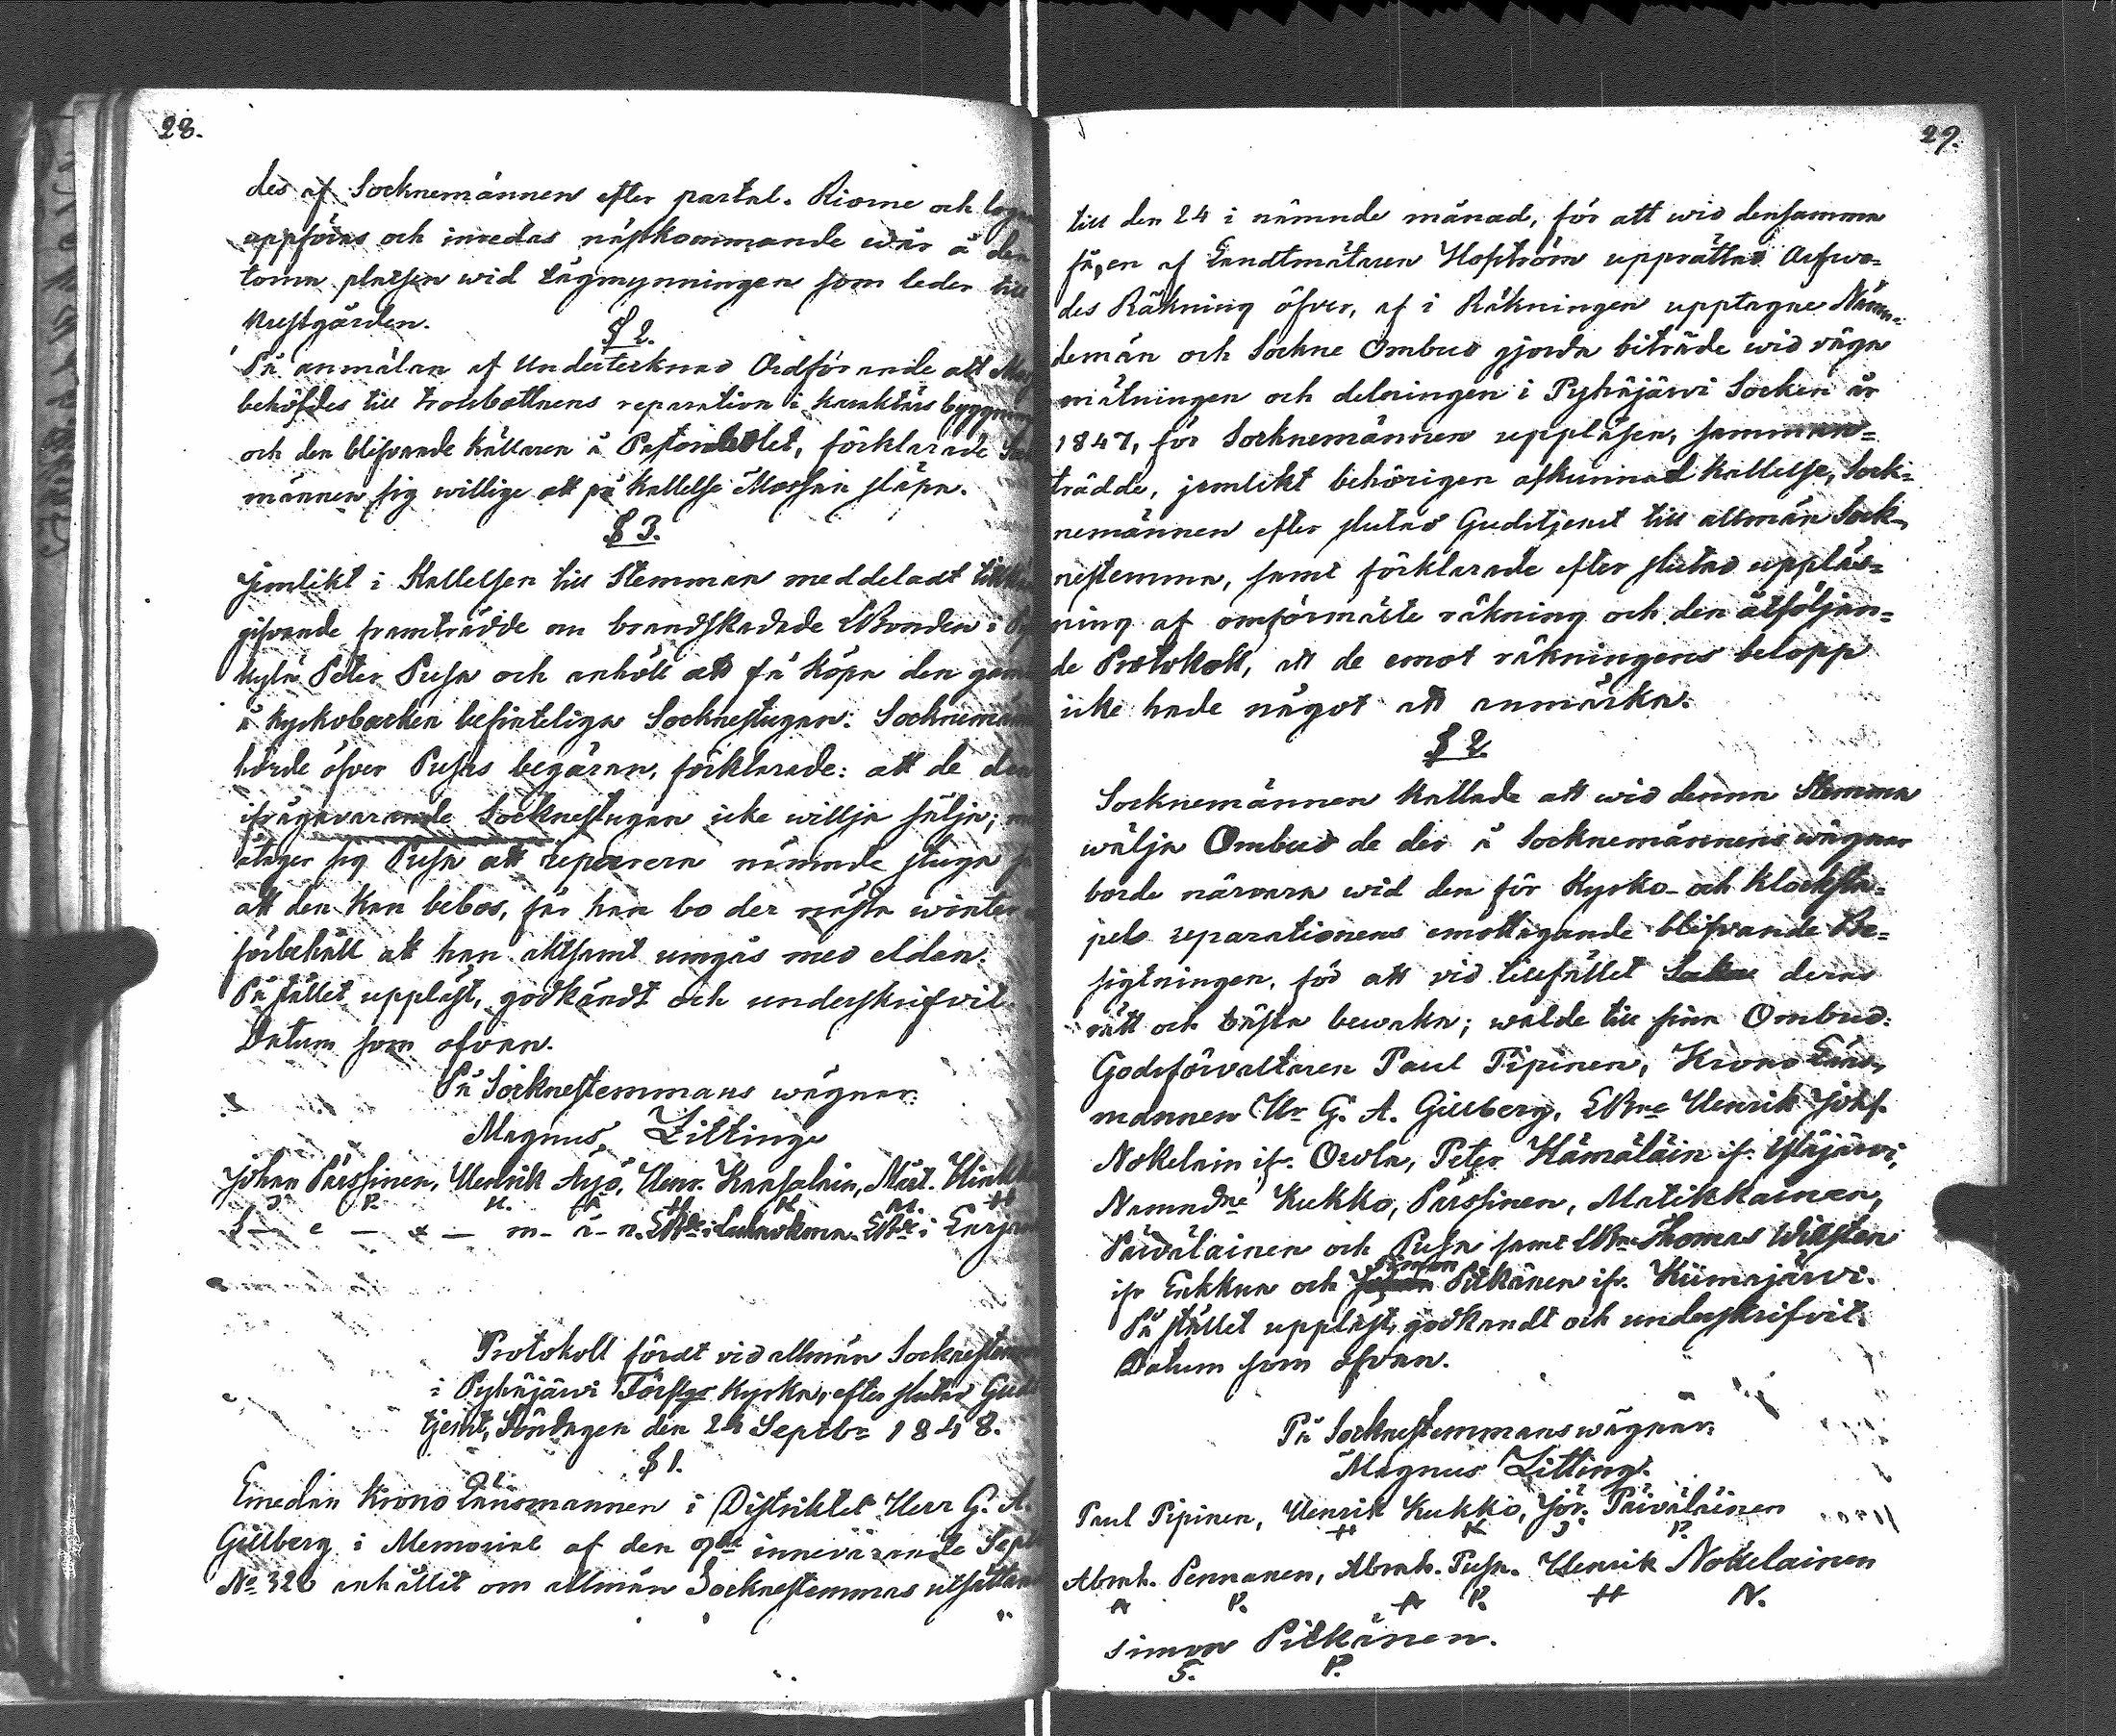 28.
des af Socknemännen efter partal. Riorne och
uppföras och inredas nästkommande wår å den
toma platsen wid tågmynningen som leder till
Prestgården.
§ 2.
På anmälan af Undertecknad Ordförande att
behöfdes till trossbottnens reparation i karaktärs byggni
och den blifvande källaren å Pastorsbolet, förklarade
männen sig willige att på kallelse Mossan släpa.
§ 3.
Jemlikt i Kallelsen till Stemman meddeladt
gifvande framträdde en brandskadade EBonden i
kylä Peter Pusa och anhöll att få köpa den
å kyrkobacken befinteliga Socknestugan. Socknemän
hörde öfver Pusas begäran, förklarade: att de den
ifrågavarande Socknestugan icke willja sälja;
åtager sig Pusa att reparera nämnde stuga
att den kan bebos, får han bo der nästa winter
förbehåll att han aktsamt umgås med elden.
På stället uppläst, godkändt och underskrifvit.
Datum som ofvan.
På Socknestemmans wägnar.
Magnus Zitting
Johan Pärssinen, Henrik Äijö, Henr. Kansalain, Mårt. Hinkk
J. P. H. Ä H K M. H
S — e — x — m - ä - n. EBde i EBde i
Protokoll fördt vid allmän Socknestem
i Pyhäjärwi Förstgs Kyrka, efter slutad Guds
tjenst, Söndagen den 24 Septbr 1848.
§ 1.
Emedan Krono Länsmannen i Distriktet Herr G. A.
Gillberg i Memorial af den 9de innevarande Sept
No 326 anhållit om allmän Socknestemmas utsättan
29.
till den 24 i nämnde månad, för att wid densamma
få, en af Landtmätaren Hofström upprättad Arfwo-
des Räkning öfver, af i Räkningen upptagne Näm-
demän och Sockne Ombud gjorda biträde wid väga
mätningen och delningen i Pyhäjärwi Socken år
1847, för Socknemännen uppläsen, samman-
trädde, jemlikt behörigen afkunnad Kallelse, Sock-
nemännen efter slutad Gudstjenst till allmän Sock-
nestemma, samt förklarade efter slutad uppläs-
ning af omförmälte räkning och den åtföljan-
de Protokoll, att de emot räkningens belopp
icke hade något att anmärka.
§ 2.
Socknemännen kallade att wid denna Stemma
wälja Ombud de der å Socknemännens wägnar
borde närvara wid den för Kyrko- och Klocksta-
pels reparationens emottagande blifvande Be-
sigtningen, för att vid tillefället deras
rätt och bästa bewaka; walde till sina Ombud:
Godsförvaltaren Paul Pipinen, Krono Läns-
mannen Hr G. A. Gillberg, EBne Henrik Johf.
Nokelain ifr. Orola, Peter Hämäläin ifr. Yläjärwi,
Nämndne Kukko, Pärssinen, Matikkainen,
Päiväläinen och Pusa samt EBne Thomas Wilsten
ifr Enkkua och Simon Pitkänen ifr. Kiimajärwi.
På stället uppläst, godkandt och underskrifvit.
Datum som ofvan.
På Socknestemmans wägnar.
Magnus Zitting.
Paul Pipinen, Henrik Kukko, Jör. Päiväläinen
H K J. P.
Abrah. Pennanen, Abrah. Pusa. Henrik Nokelainen
A P. A P. H N.
Simon Pitkänen.
S. P.